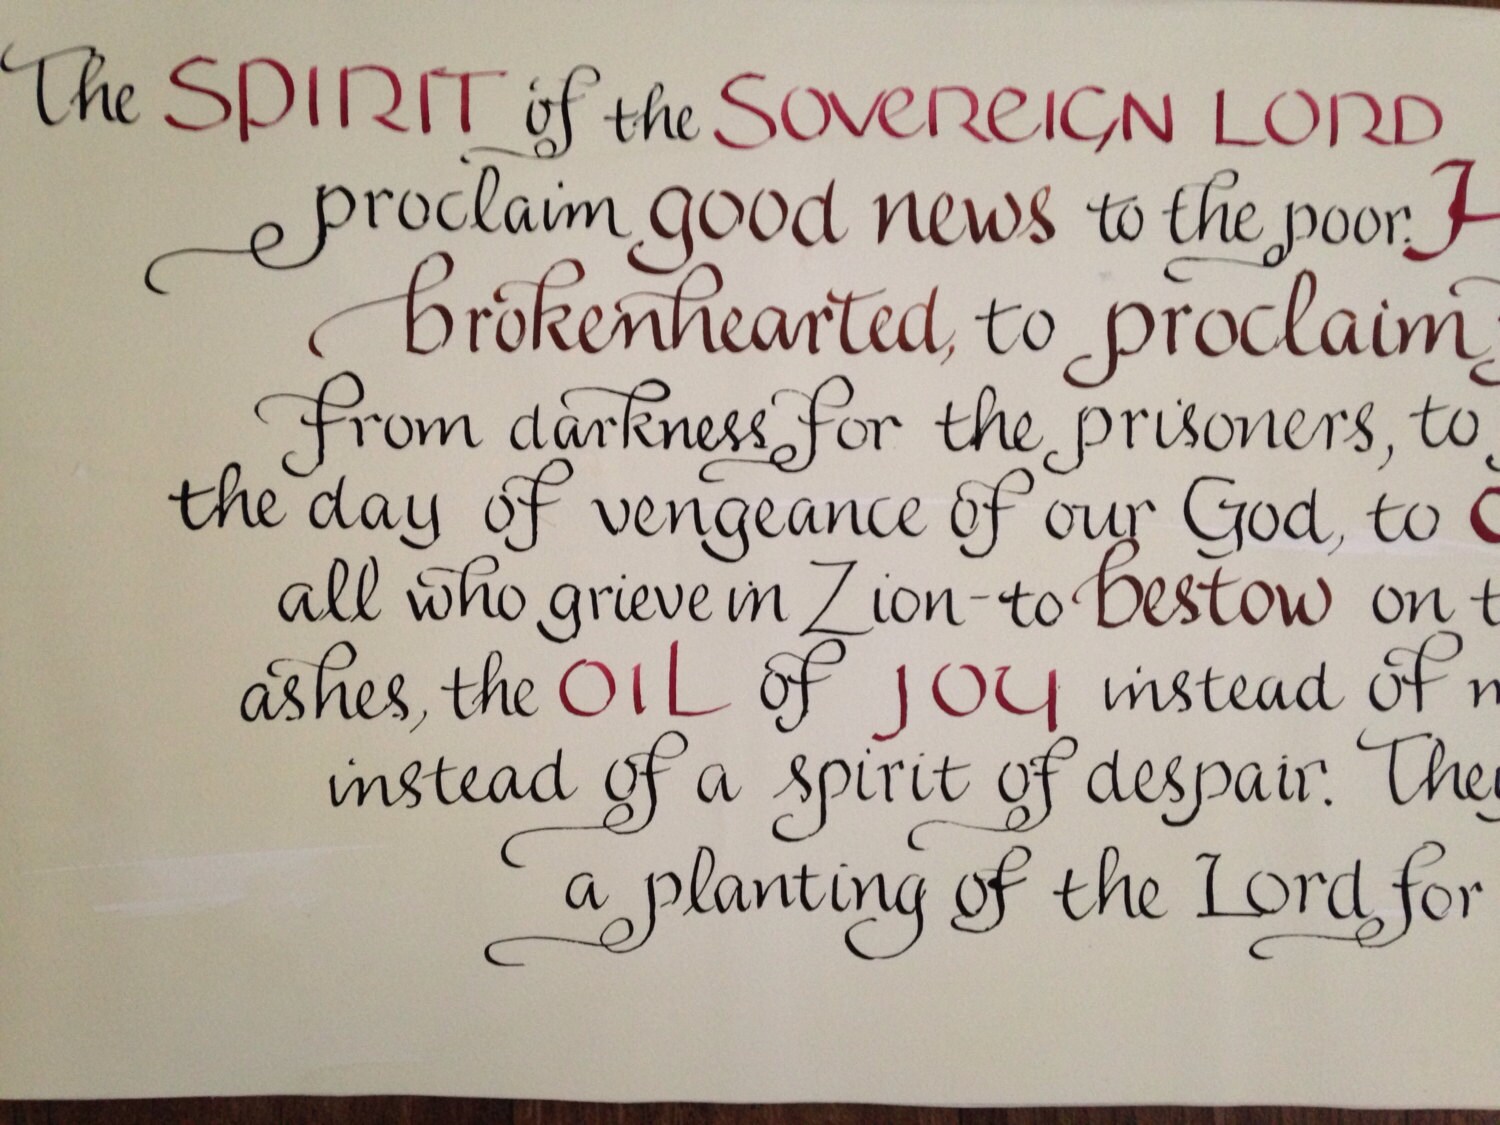 The SPIRIT of the SOVEREIGN LORD
proclaim good news to the poor. H
brokenhearted, to proclaim
from darkness for the prisoners, to
the day of vengeance of our God, to c
all who grieve in Zion-to bestow on t
ashes, the OIL of JOY instead of m
instead of a spirit of despair. They
a planting of the Lord for